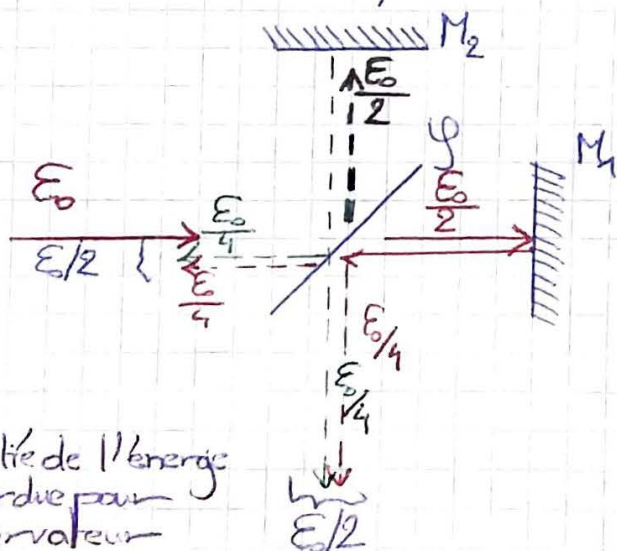 M2
E0/2
S
M1
E0
E0/4
E0/2
E0/2
E0/4
E0/4
E0/4
tié de l'énergie
rdue pour
ervateur
E0/2